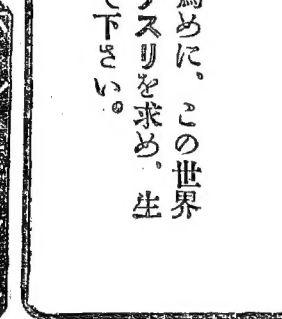 めに。この世界
スリを求め、生
下さい。